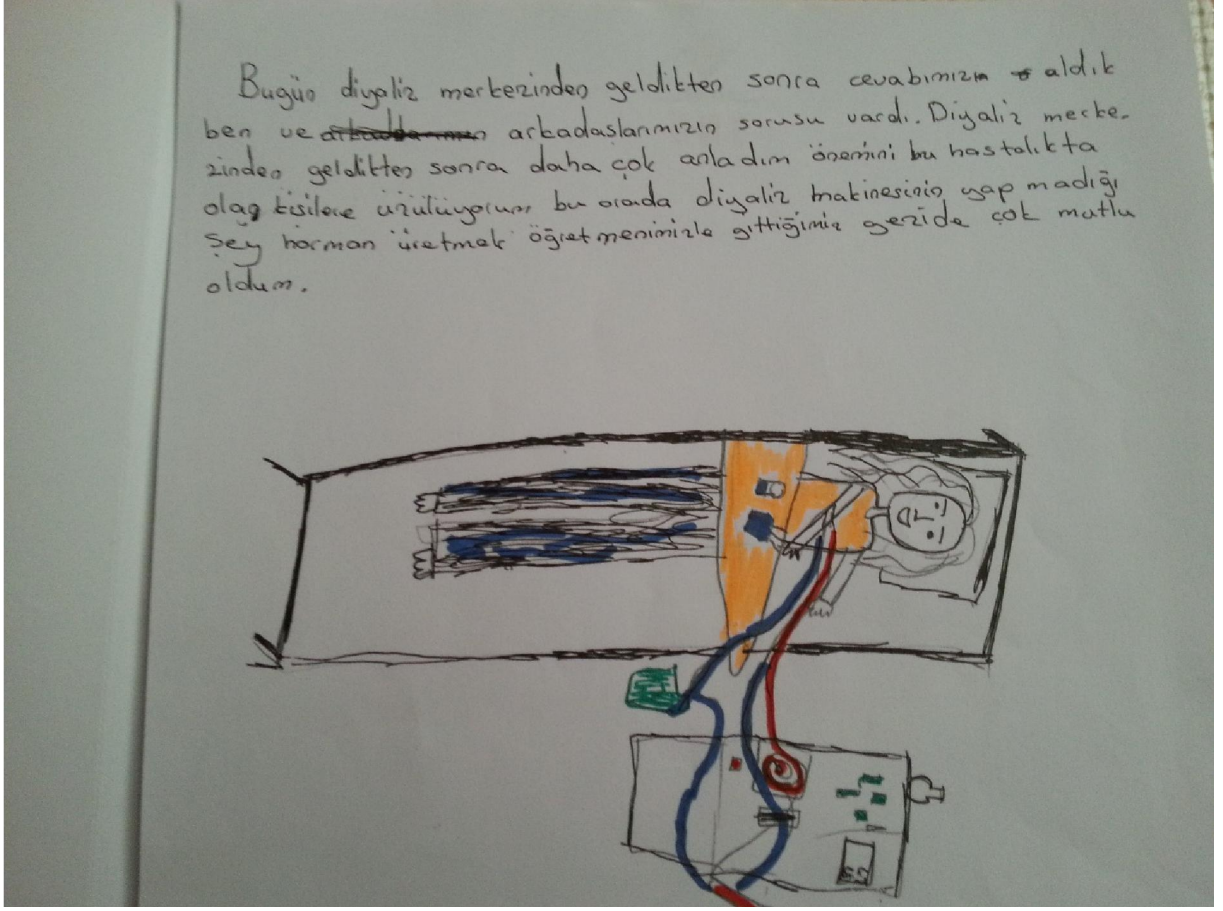 Bugün diyaliz merkezinden geldikten sonra cevabımızın aldık
ben ve arkadaşlarımızın sorusu vardı. Diyaliz merke-
zinden geldikten sonra daha çok anladım önemini bu hastalıkta
olan kişilere üzülüyorum bu arada diyaliz makinesinin yap madığı
şey hormon üretmek öğretmenimizle gittiğimiz gezide çok mutlu
oldum.